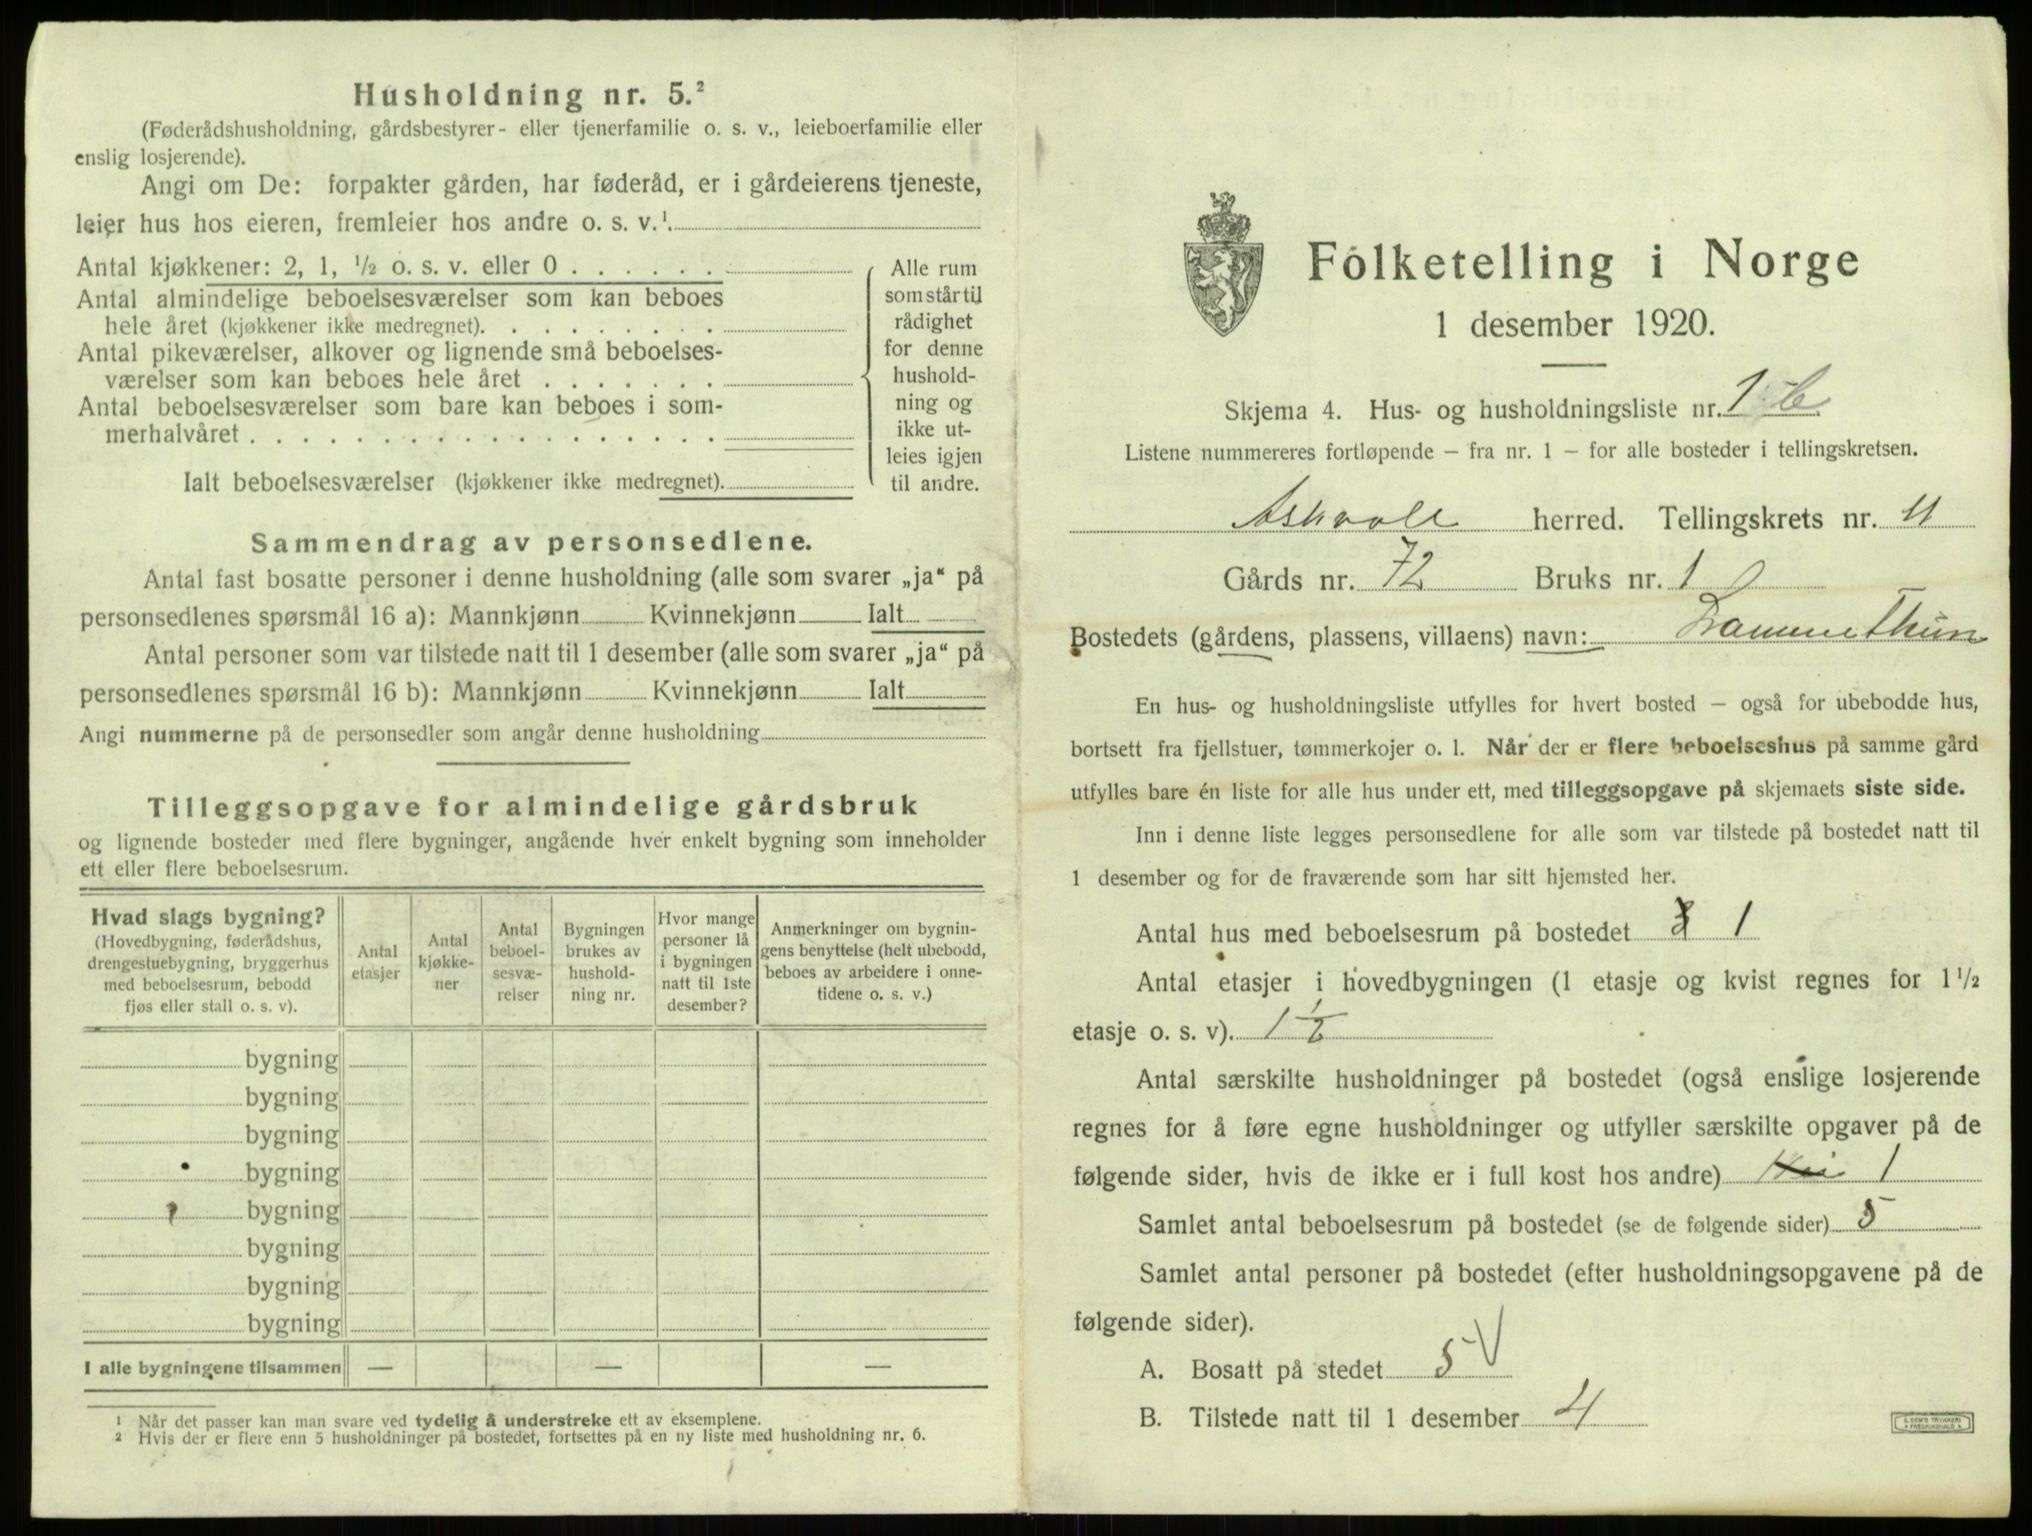 Husholdning nr. 5.²
(Føderådshusholdning, gårdsbestyrer- eller tjenerfamilie o. s. v., leieboerfamilie eller
enslig losjerende).
Angi om De: forpakter gården, har føderåd, er i gårdeierens tjeneste,
leier hus hos eieren, fremleier hos andre o. s. v.¹.
Antal kjøkkener: 2, 1, ½ o. s. v. eller 0
Antal almindelige beboelsesværelser som kan beboes
hele året (kjøkkener ikke medregnet).
Antal pikeværelser, alkover og lignende små beboelses-
værelser som kan beboes hele året
Antal beboelsesværelser som bare kan beboes i som-
merhalvåret
Ialt beboelsesværelser (kjøkkener ikke medregnet).
Alle rum
som står til
rådighet
for denne
hushold-
ning og
ikke ut-
leies igjen
til andre.
Sammendrag av personsedlene.
Antal fast bosatte personer i denne husholdning (alle som svarer „ja“ på
personsedlenes spørsmål 16 a): Mannkjønn Kvinnekjønn Ialt
Antal personer som var tilstede natt til 1 desember (alle som svarer „ja“ på
personsedlenes spørsmål 16 b): Mannkjønn Kvinnekjønn Ialt
Angi nummerne på de personsedler som angår denne husholdning
Tilleggsopgave for almindelige gårdsbruk
og lignende bosteder med flere bygninger, angående hver enkelt bygning som inneholder
ett eller flere beboelsesrum.
Hvad slags bygning?
(Hovedbygning, føderådshus,
drengestuebygning, bryggerhus
med beboelsesrum, bebodd
fjøs eller stall o. s. v).
Antal
etasjer
Antal
kjøkke-
ner
Antal
beboel-
sesvæ-
relser
Bygningen
brukes av
hushold-
ning nr.
Hvor mange
personer lå
i bygningen
natt til 1ste
desember?
Anmerkninger om bygnin-
gens benyttelse (helt ubebodd,
beboes av arbeidere i onne-
tidene o. s. v.)
bygning
bygning
bygning
bygning
bygning
bygning
bygning
bygning
I alle bygningene tilsammen — — —
¹ Når det passer kan man svare ved tydelig å understreke ett av eksemplene.
² Hvis der er flere enn 5 husholdninger på bostedet, fortsettes på en ny liste med husholdning nr. 6.
Folketelling i Norge
1 desember 1920.
Skjema 4. Hus- og husholdningsliste nr. 1 b
Listene nummereres fortløpende – fra nr. 1 – for alle bosteder i tellingskretsen.
Askvoll herred. Tellingskrets nr. 11
Gårds nr. 72 Bruks nr. 1
Bostedets (gårdens, plassens, villaens) navn:
En hus- og husholdningsliste utfylles for hvert bosted – også for ubebodde hus,
bortsett fra fjellstuer, tømmerkojer o. l. Når der er flere beboelseshus på samme gård
utfylles bare én liste for alle hus under ett, med tilleggsopgave på skjemaets siste side.
Inn i denne liste legges personsedlene for alle som var tilstede på bostedet natt til
1 desember og for de fraværende som har sitt hjemsted her.
Antal hus med beboelsesrum på bostedet 1
Antal etasjer i hovedbygningen (1 etasje og kvist regnes for 1½
etasje o. s. v). 1½
Antal særskilte husholdninger på bostedet (også enslige losjerende
regnes for å føre egne husholdninger og utfyller særskilte opgaver på de
følgende sider, hvis de ikke er i full kost hos andre) 1
Samlet antal beboelsesrum på bostedet (se de følgende sider) 5
Samlet antal personer på bostedet (efter husholdningsopgavene på de
følgende sider).
A. Bosatt på stedet 5 V
B. Tilstede natt til 1 desember 4